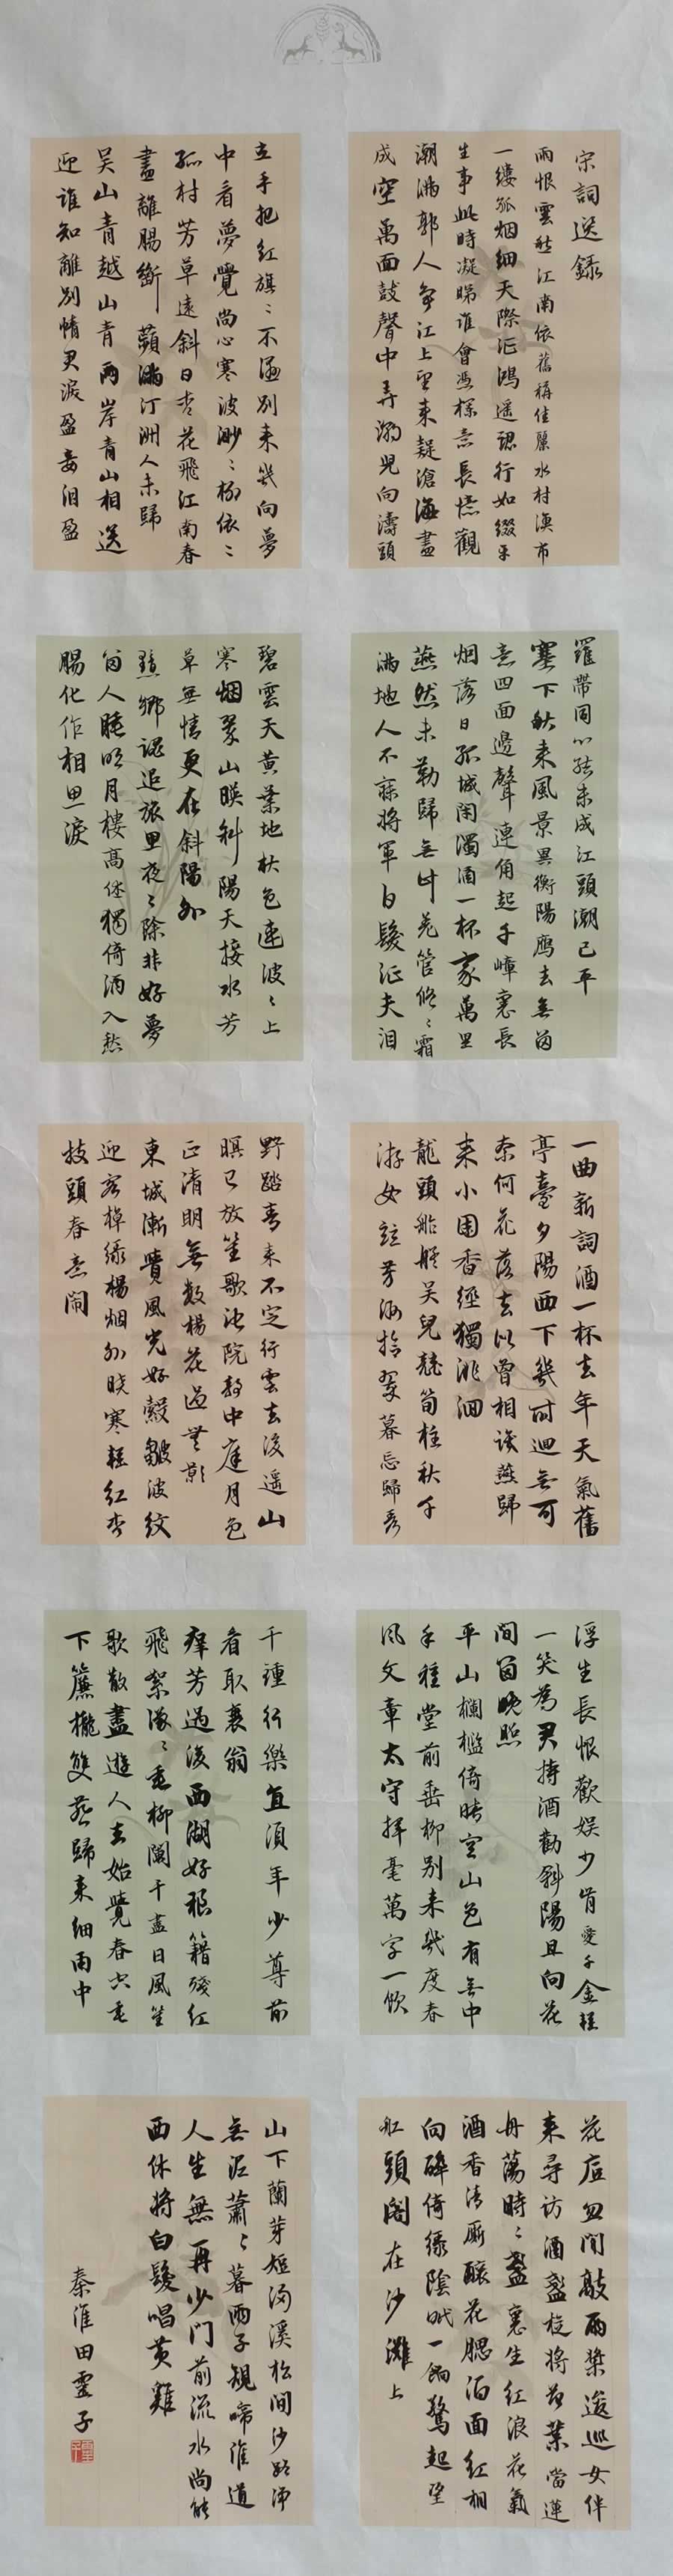 宋詞送録
雨恨雲愁江南依舊稱佳麗水村漁市
一縷孤烟細天際征鴻遥認行如綴平
生事此時凝睇誰會憑欄意長憶觀
潮滿郭人争江上望来疑滄海盡
成空萬面鼓聲中弄潮兒向濤頭
立手把紅旗ミ不濕别来幾向夢
中看夢覺尚心寒波渺ミ柳依ミ
孤村芳草遠斜日杏花飛江南春
盡離腸斷蘋滿汀洲人未歸
吴山青越山青兩岸青山相送
迎誰知離别情君淚盈妾泪盈
羅帶同心結未成江頭潮已平
塞下秋来風景異衡陽雁去無留
意四面邊聲連角起千嶂裏長
烟落日孤城閉濁酒一杯家萬里
燕然未勒歸無計羌管悠ミ霜
滿地人不寐將軍白髮征夫泪
碧雲天黄葉地秋色連波ミ上
寒烟翠山映斜陽天接水芳
草無情更在斜陽外
黯鄉魂追旅思夜ミ除非好夢
留人睡明月樓高休獨倚酒入愁
腸化作相思淚
一曲新詞酒一杯去年天氣舊
亭臺夕陽西下幾時迴無可
奈何花落去似曾相識燕歸
来小園香徑獨徘徊
龍頭舴艋吴兒競筍柱秋千
游女並芳洲拾翠暮忘歸秀
野踏青来不定行雲去後遥山
暝已放笙歌池院静中庭月色
正清明無數楊花過無影
東城漸覺風光好縠皺波紋
迎客棹緑楊烟外曉寒輕紅杏
枝頭春意鬧
浮生長恨歡娱少肯愛千金輕
一笑為君持酒勸斜陽且向花
間留晚照
平山欄檻倚晴空山色有無中
手種堂前垂柳别来幾度春
風文章太守揮毫萬字一飲
千鍾行樂直須年少尊前
看取衰翁
群芳過後西湖好狼籍殘紅
飛絮濛ミ垂柳闌干盡日風笙
歌散盡遊人去始覺春空垂
下簾櫳雙燕歸来細雨中
花底忽聞敲兩槳逡巡女伴
来尋訪酒盞旋將荷葉當蓮
舟蕩時ミ盞裏生紅浪花氣
酒香清厮釀花腮酒面紅相
向醉倚緑陰眠一餉驚起望
舡頭閣在沙灘上
山下蘭芽短浸溪松間沙路净
無泥蕭ミ暮雨子規啼誰道
人生無再少門前流水尚能
西休將白髮唱黄雞
秦淮田靈子